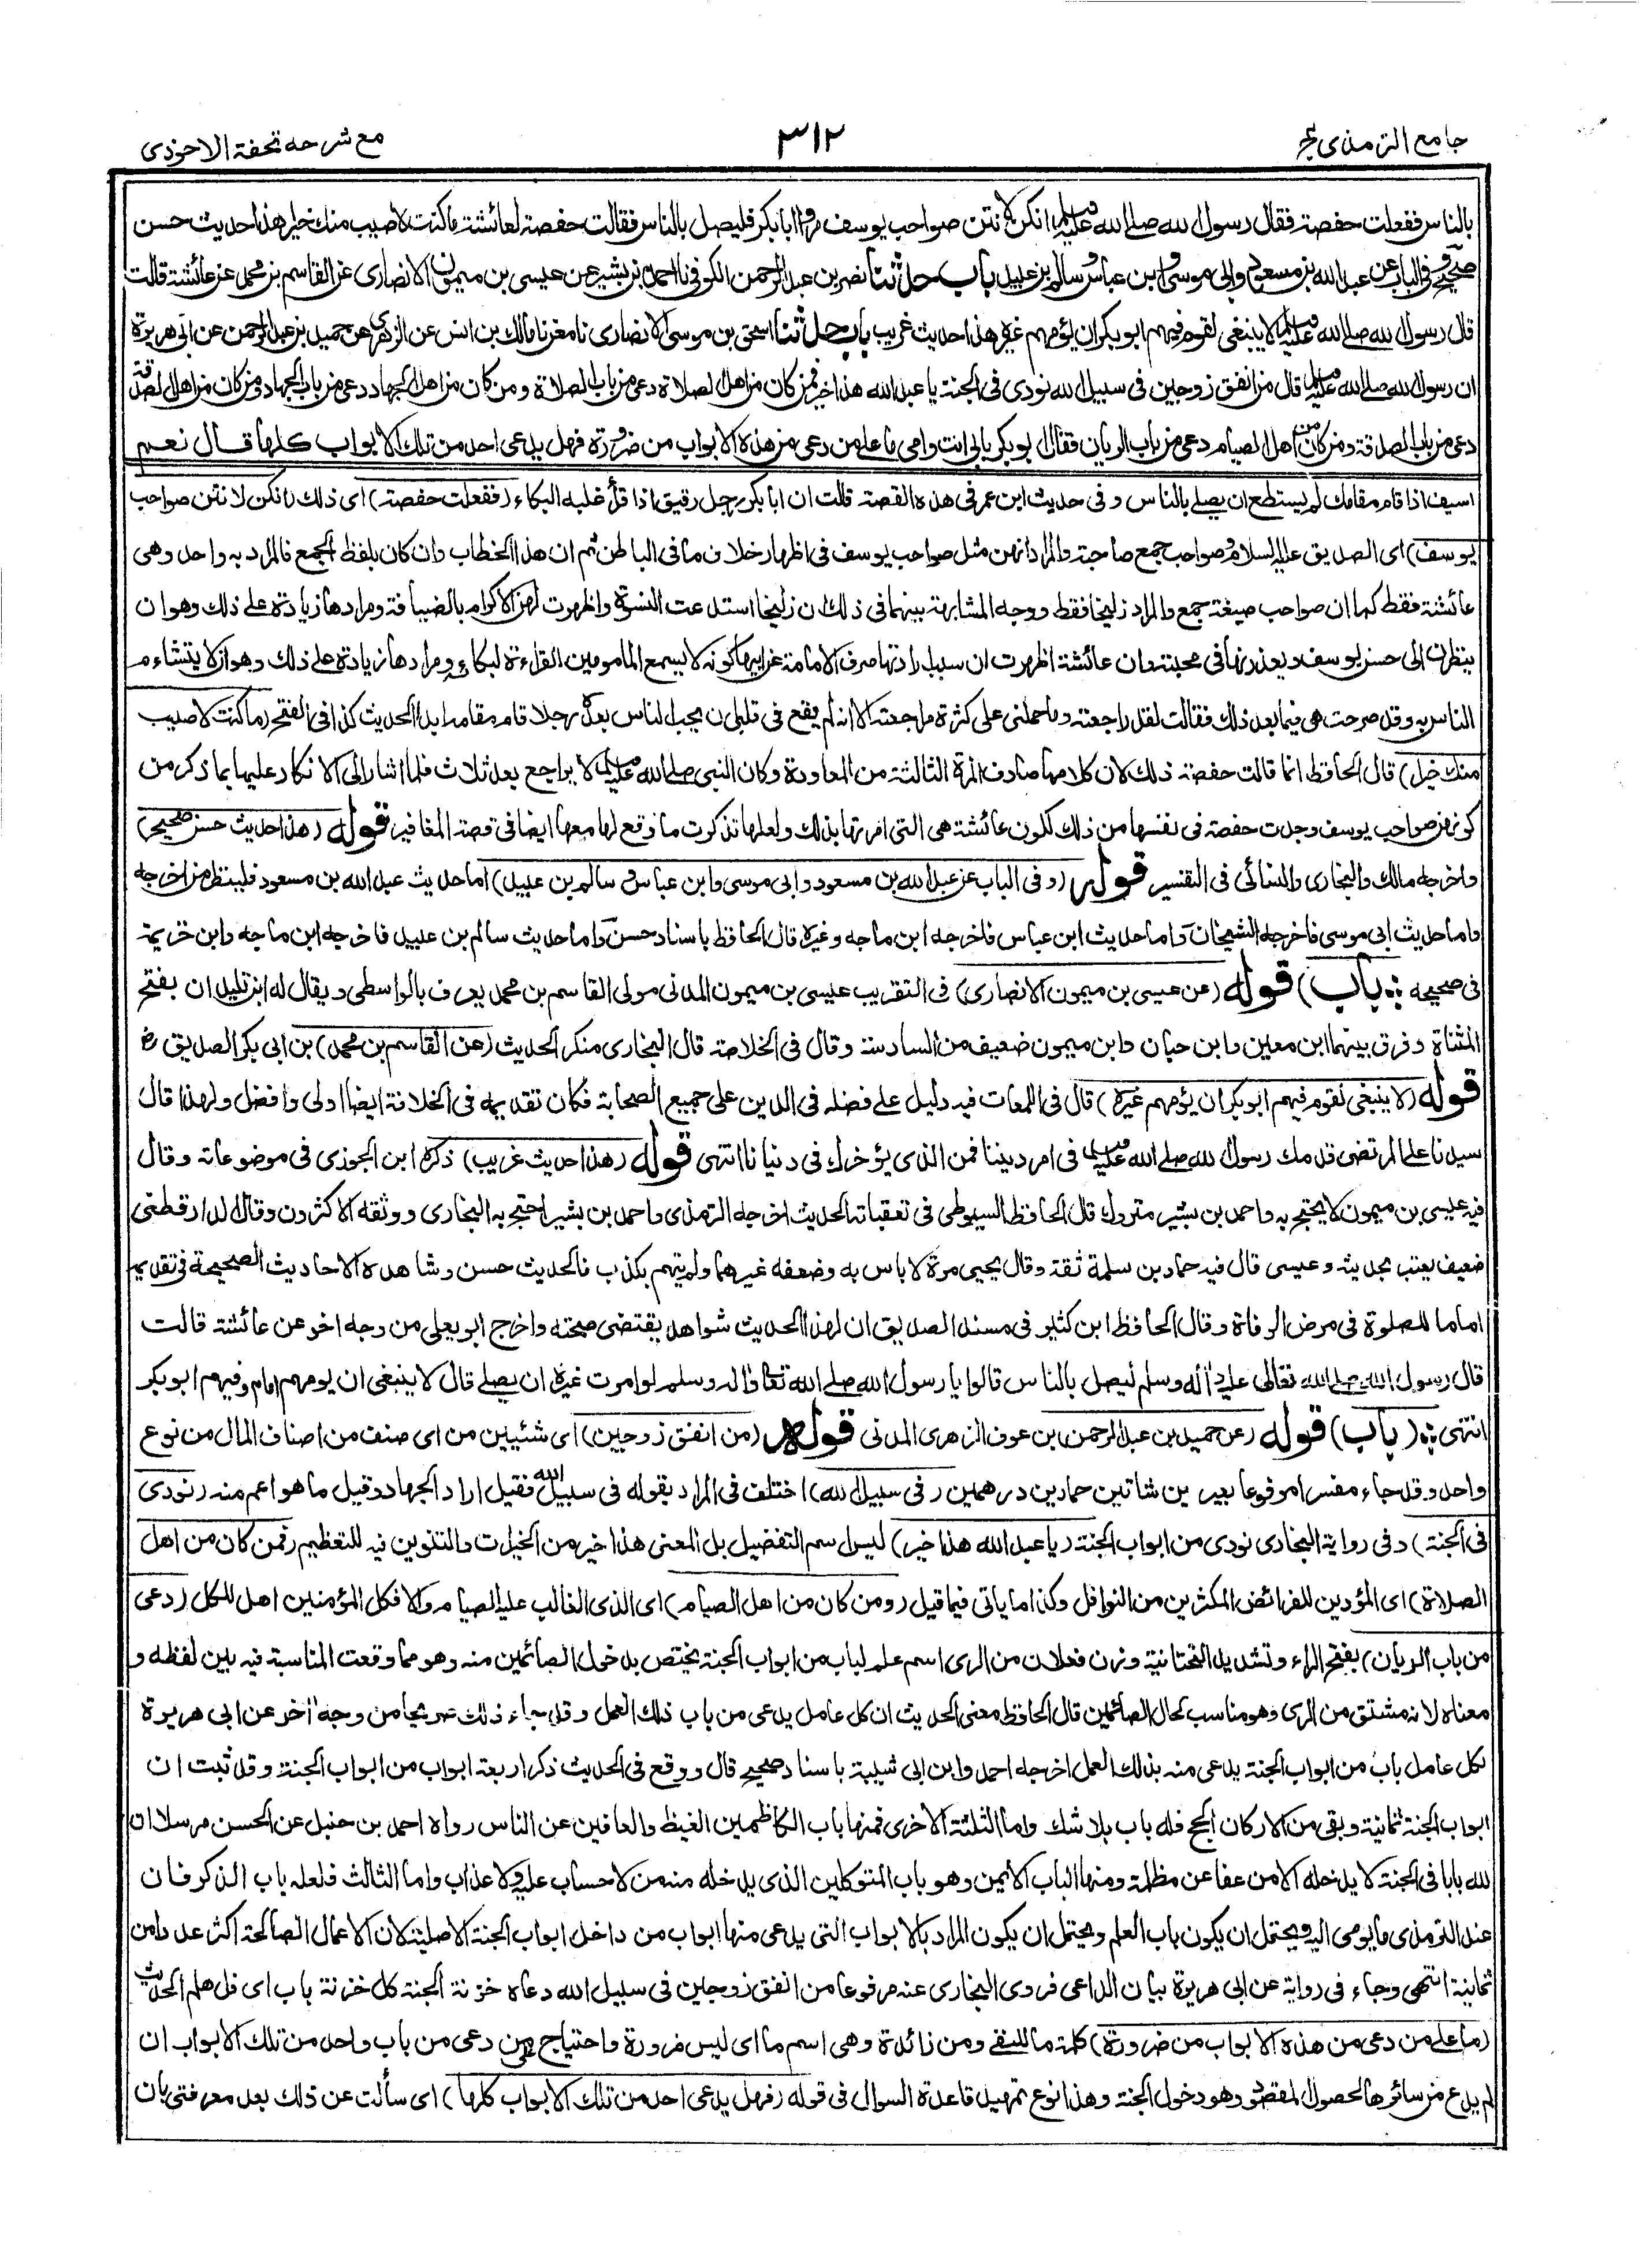 جامع الترمذى ج٤
٣١٢
مع شرحه تحفة الاحوذى
بالناس ففعلت حفصة فقال رسول الله صلى الله عليه وسلم انكن لانتن صواحب يوسف مروا ابا بكر فليصل بالناس فقالت حفصة لعائشة ما كنت لاصيب منك خيرا هذا حديث حسن
صحيح وفى الباب عن عبد الله بن مسعود وابى موسى وابن عباس وسالم بن عبيد باب حدثنا نصر بن عبد الرحمن الكوفى نا احمد بن بشير عن عيسى بن ميمون الانصارى عن القاسم بن محمد عن عائشة قالت
قال رسول الله صلى الله عليه وسلم لا ينبغى لقوم فيهم ابو بكر ان يؤمهم غيره هذا حديث غريب باب حدثنا اسحق بن موسى الانصارى نا معن نا مالك بن انس عن الزهرى عن حميد بن عبد الرحمن عن ابى هريرة
ان رسول الله صلى الله عليه وسلم قال من انفق زوجين فى سبيل الله نودى فى الجنة يا عبد الله هذا خير فمن كان من اهل الصلاة دعى من باب الصلاة ومن كان من اهل الجهاد دعى من باب الجهاد ومن كان من اهل الصدقة
دعى من باب الصدقة ومن كان من اهل الصيام دعى من باب الريان فقال ابو بكر بابى انت وامى ما على من دعى من هذه الابواب من ضرورة فهل يدعى احد من تلك الابواب كلها قال نعم
اسيف اذا قام مقامك لم يستطع ان يصلى بالناس وفى حديث ابن عمر فى هذه القصة قالت ان ابا بكر رجل رقيق اذا قرأ غلبه البكاء (ففعلت حفصة) اى ذلك (انكن لانتن صواحب
يوسف) اى الصديق عليه السلام وصواحب جمع صاحبة والمراد انهن مثل صواحب يوسف فى اظهار خلاف ما فى الباطن ثم ان هذا الخطاب وان كان بلفظ الجمع فالمراد به واحد وهى
عائشة فقط كما ان صواحب صيغة جمع والمراد زليخا فقط ووجه المشابهة بينهما فى ذلك ان زليخا استدعت النسوة واظهرت لهن الاكرام بالضيافة ومرادها زيادة على ذلك وهو ان
ينظرن الى حسن يوسف ويعذرنها فى محبته وان عائشة اظهرت ان سبب ارادتها صرف الامامة عن ابيها كونه لا يسمع المامومين القراءة لبكائه ومرادها زيادة على ذلك وهو ان لا يتشاءم
الناس به وقد صرحت هى فيما بعد ذلك فقالت لقد راجعته وما حملنى على كثرة مراجعته الا انه لم يقع فى قلبى ان يحب الناس بعده رجلا قام مقامه ابدا الحديث كذا فى الفتح (ما كنت لاصيب
منك خيرا) قال الحافظ انما قالت حفصة ذلك لان كلامها صادف المرة الثالثة من المعاودة وكان النبى صلى الله عليه وسلم لا يراجع بعد ثلاث فلما اشار الى الانكار عليها بما ذكر من
كونهن صواحب يوسف وجدت حفصة فى نفسها من ذلك لكون عائشة هى التى امرتها بذلك ولعلها تذكرت ما وقع لها معها ايضا فى قصة المغافير قوله (هذا حديث حسن صحيح)
واخرجه مالك والبخارى والنسائى فى التفسير قوله (وفى الباب عن عبد الله بن مسعود وابى موسى وابن عباس وسالم بن عبيد) اما حديث عبد الله بن مسعود فلينظر من اخرجه
واما حديث ابى موسى فاخرجه الشيخان واما حديث ابن عباس فاخرجه ابن ماجه وغيره قال الحافظ باسناد حسن واما حديث سالم بن عبيد فاخرجه ابن ماجه وابن خزيمة
فى صحيحه (باب) قوله (عن عيسى بن ميمون الانصارى) فى التقريب عيسى بن ميمون المدنى مولى القاسم بن محمد يعرف بالواسطى ويقال له ابن تليدان بفتح
المثناة وفرق بينهما ابن معين وابن حبان وابن ميمون ضعيف من السادسة وقال فى الخلاصة قال البخارى منكر الحديث (عن القاسم بن محمد) بن ابى بكر الصديق رض
قوله (لا ينبغى لقوم فيهم ابو بكر ان يؤمهم غيره) قال فى اللمعات فيه دليل على فضله فى الدين على جميع الصحابة فكان تقديمه فى الخلافة ايضا اولى وافضل ولهذا قال
سيدنا على المرتضى قدمك رسول الله صلى الله عليه وسلم فى امر ديننا فمن الذى يؤخرك فى دنيانا انتهى قوله (هذا حديث غريب) ذكره ابن الجوزى فى موضوعاته وقال
فيه عيسى بن ميمون لا يحتج به واحمد بن بشير متروك قال الحافظ السيوطى فى تعقباته الحديث اخرجه الترمذى واحمد بن بشير احتج به البخارى ووثقه الاكثرون وقال الدارقطنى
ضعيف يعتبر بحديثه وعيسى قال فيه حماد بن سلمة ثقة وقال يحيى مرة لا باس به وضعفه غيرهما ولم يتهم بكذب فالحديث حسن وشاهده الاحاديث الصحيحة فى تقديمه
اماما للصلوة فى مرض الوفاة وقال الحافظ ابن كثير فى مسند الصديق ان لهذا الحديث شواهد يقتضى صحته واخرج ابو يعلى من وجه اخر عن عائشة قالت
قال رسول الله صلى الله تعالى عليه وآله وسلم ليصل بالناس قالوا يا رسول الله صلى الله تعالى وآله وسلم لو امرت غيره ان يصلى قال لا ينبغى ان يؤمهم امام وفيهم ابو بكر
انتهى (باب) قوله (عن حميد بن عبد الرحمن) بن عوف الزهرى المدنى قوله (من انفق زوجين) اى شيئين من اى صنف من اصناف المال من نوع
واحد وقد جاء مفسرا مرفوعا بعيرين شاتين حمارين درهمين (فى سبيل الله) اختلف فى المراد بقوله فى سبيل الله فقيل اراد الجهاد وقيل ما هو اعم منه (نودى
فى الجنة) وفى رواية البخارى نودى من ابواب الجنة (يا عبد الله هذا خير) ليس اسم التفضيل بل المعنى هذا خير من الخيرات والتنوين فيه للتعظيم (فمن كان من اهل
الصلاة) اى المؤدين للفرائض المكثرين من النوافل وكذا ما ياتى فيما قيل (ومن كان من اهل الصيام) اى الذى الغالب عليه الصيام والا فكل المؤمنين اهل للكل (دعى
من باب الريان) بفتح الراء وتشديد التحتانية وزن فعلان من الرى اسم علم لباب من ابواب الجنة يختص بدخول الصائمين منه وهو مما وقعت المناسبة فيه بين لفظه و
معناه لانه مشتق من الرى وهو مناسب لحال الصائمين قال الحافظ معنى الحديث ان كل عامل يدعى من باب ذلك العمل وقد جاء ذلك صريحا من وجه آخر عن ابى هريرة
لكل عامل باب من ابواب الجنة يدعى منه بذلك العمل اخرجه احمد وابن ابى شيبة باسناد صحيح قال ووقع فى الحديث ذكر اربعة ابواب من ابواب الجنة وقد ثبت ان
ابواب الجنة ثمانية وبقى من الاركان الحج فله باب بلا شك واما الثلثة الاخرى فمنها باب الكاظمين الغيظ والعافين عن الناس رواه احمد بن حنبل عن الحسن مرسلا ان
لله بابا فى الجنة لا يدخله الا من عفا عن مظلمة ومنها الباب الايمن وهو باب المتوكلين الذى يدخله منه من لا حساب عليه ولا عذاب واما الثالث فلعله باب الذكر فان
عند الترمذى ما يومى اليه ويحتمل ان يكون باب العلم ويحتمل ان يكون المراد بالابواب التى يدعى منها ابواب من داخل ابواب الجنة الاصلية لان الاعمال الصالحة اكثر عددا من
ثمانية انتهى وجاء فى رواية عن ابى هريرة بيان الداعى فروى البخارى عنه مرفوعا من انفق زوجين فى سبيل الله دعاه خزنة الجنة كل خزنة باب اى فل هلم الحديث
(ما على من دعى من هذه الابواب من ضرورة) كلمة ما للنفى ومن زائدة وهى اسم ما اى ليس ضرورة واحتياج من دعى من باب واحد من تلك الابواب ان
لم يدع من سائرها لحصول المقصود وهو دخول الجنة وهذا نوع تمهيد قاعدة السوال فى قوله (فهل يدعى احد من تلك الابواب كلها) اى سألت عن ذلك بعد معرفتى بان